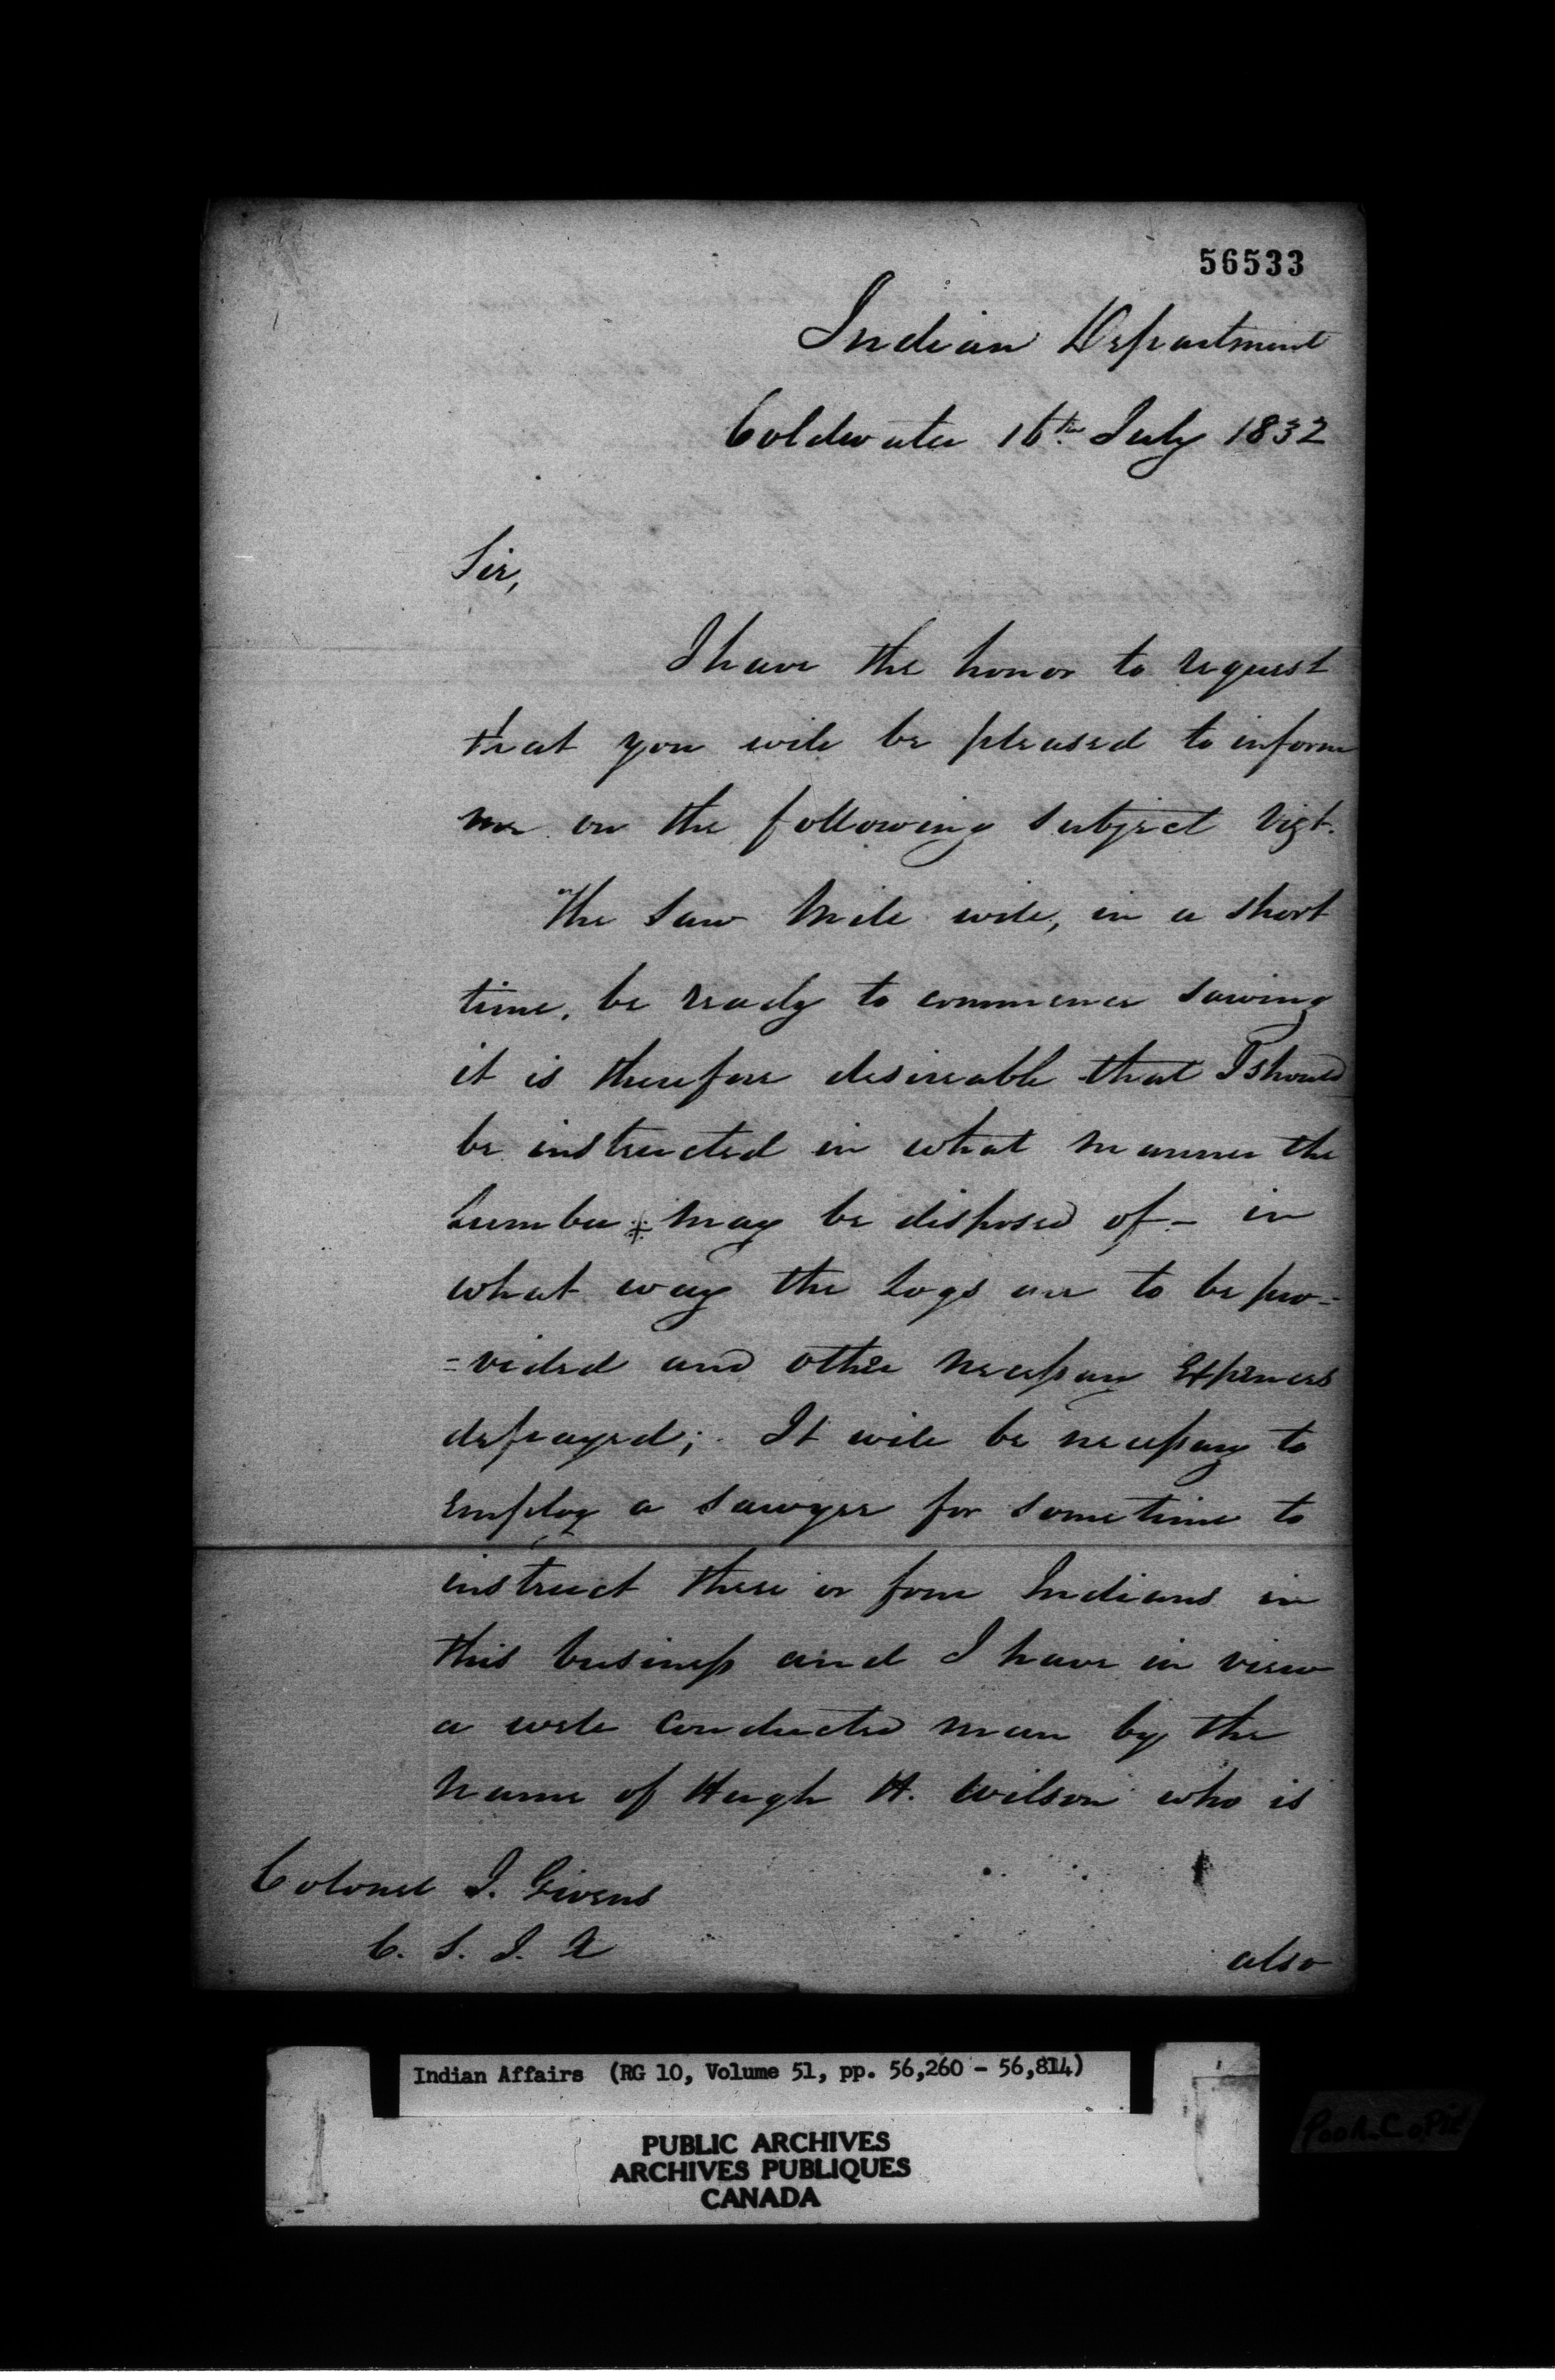 56533
Indian Department
Coldwater 16th July 1832
Sir,
I have the honor to request
that you will be pleased to inform
me on the following subject Vizt.
The Saw Mill will, in a short
time, be ready to commence sawing
it is therefore desireable that I should
be instructed in what manner the
Lumber + may be disposed of - in
what way the Logs are to be pro=
=vided and other necessary Expences
defrayed; It will be necessary to
Employ a sawyer for some time to
instruct three or four Indians in
this business and I have in view
a well conducted man by the
name of Hugh H. Wilson who is
Colonel J. Givens
C. S. I. A
also
Indian Affairs (RG 10, Volume 51, pp. 56,260 - 56,814)
PUBLIC ARCHIVES
ARCHIVES PUBLIQUES
CANADA